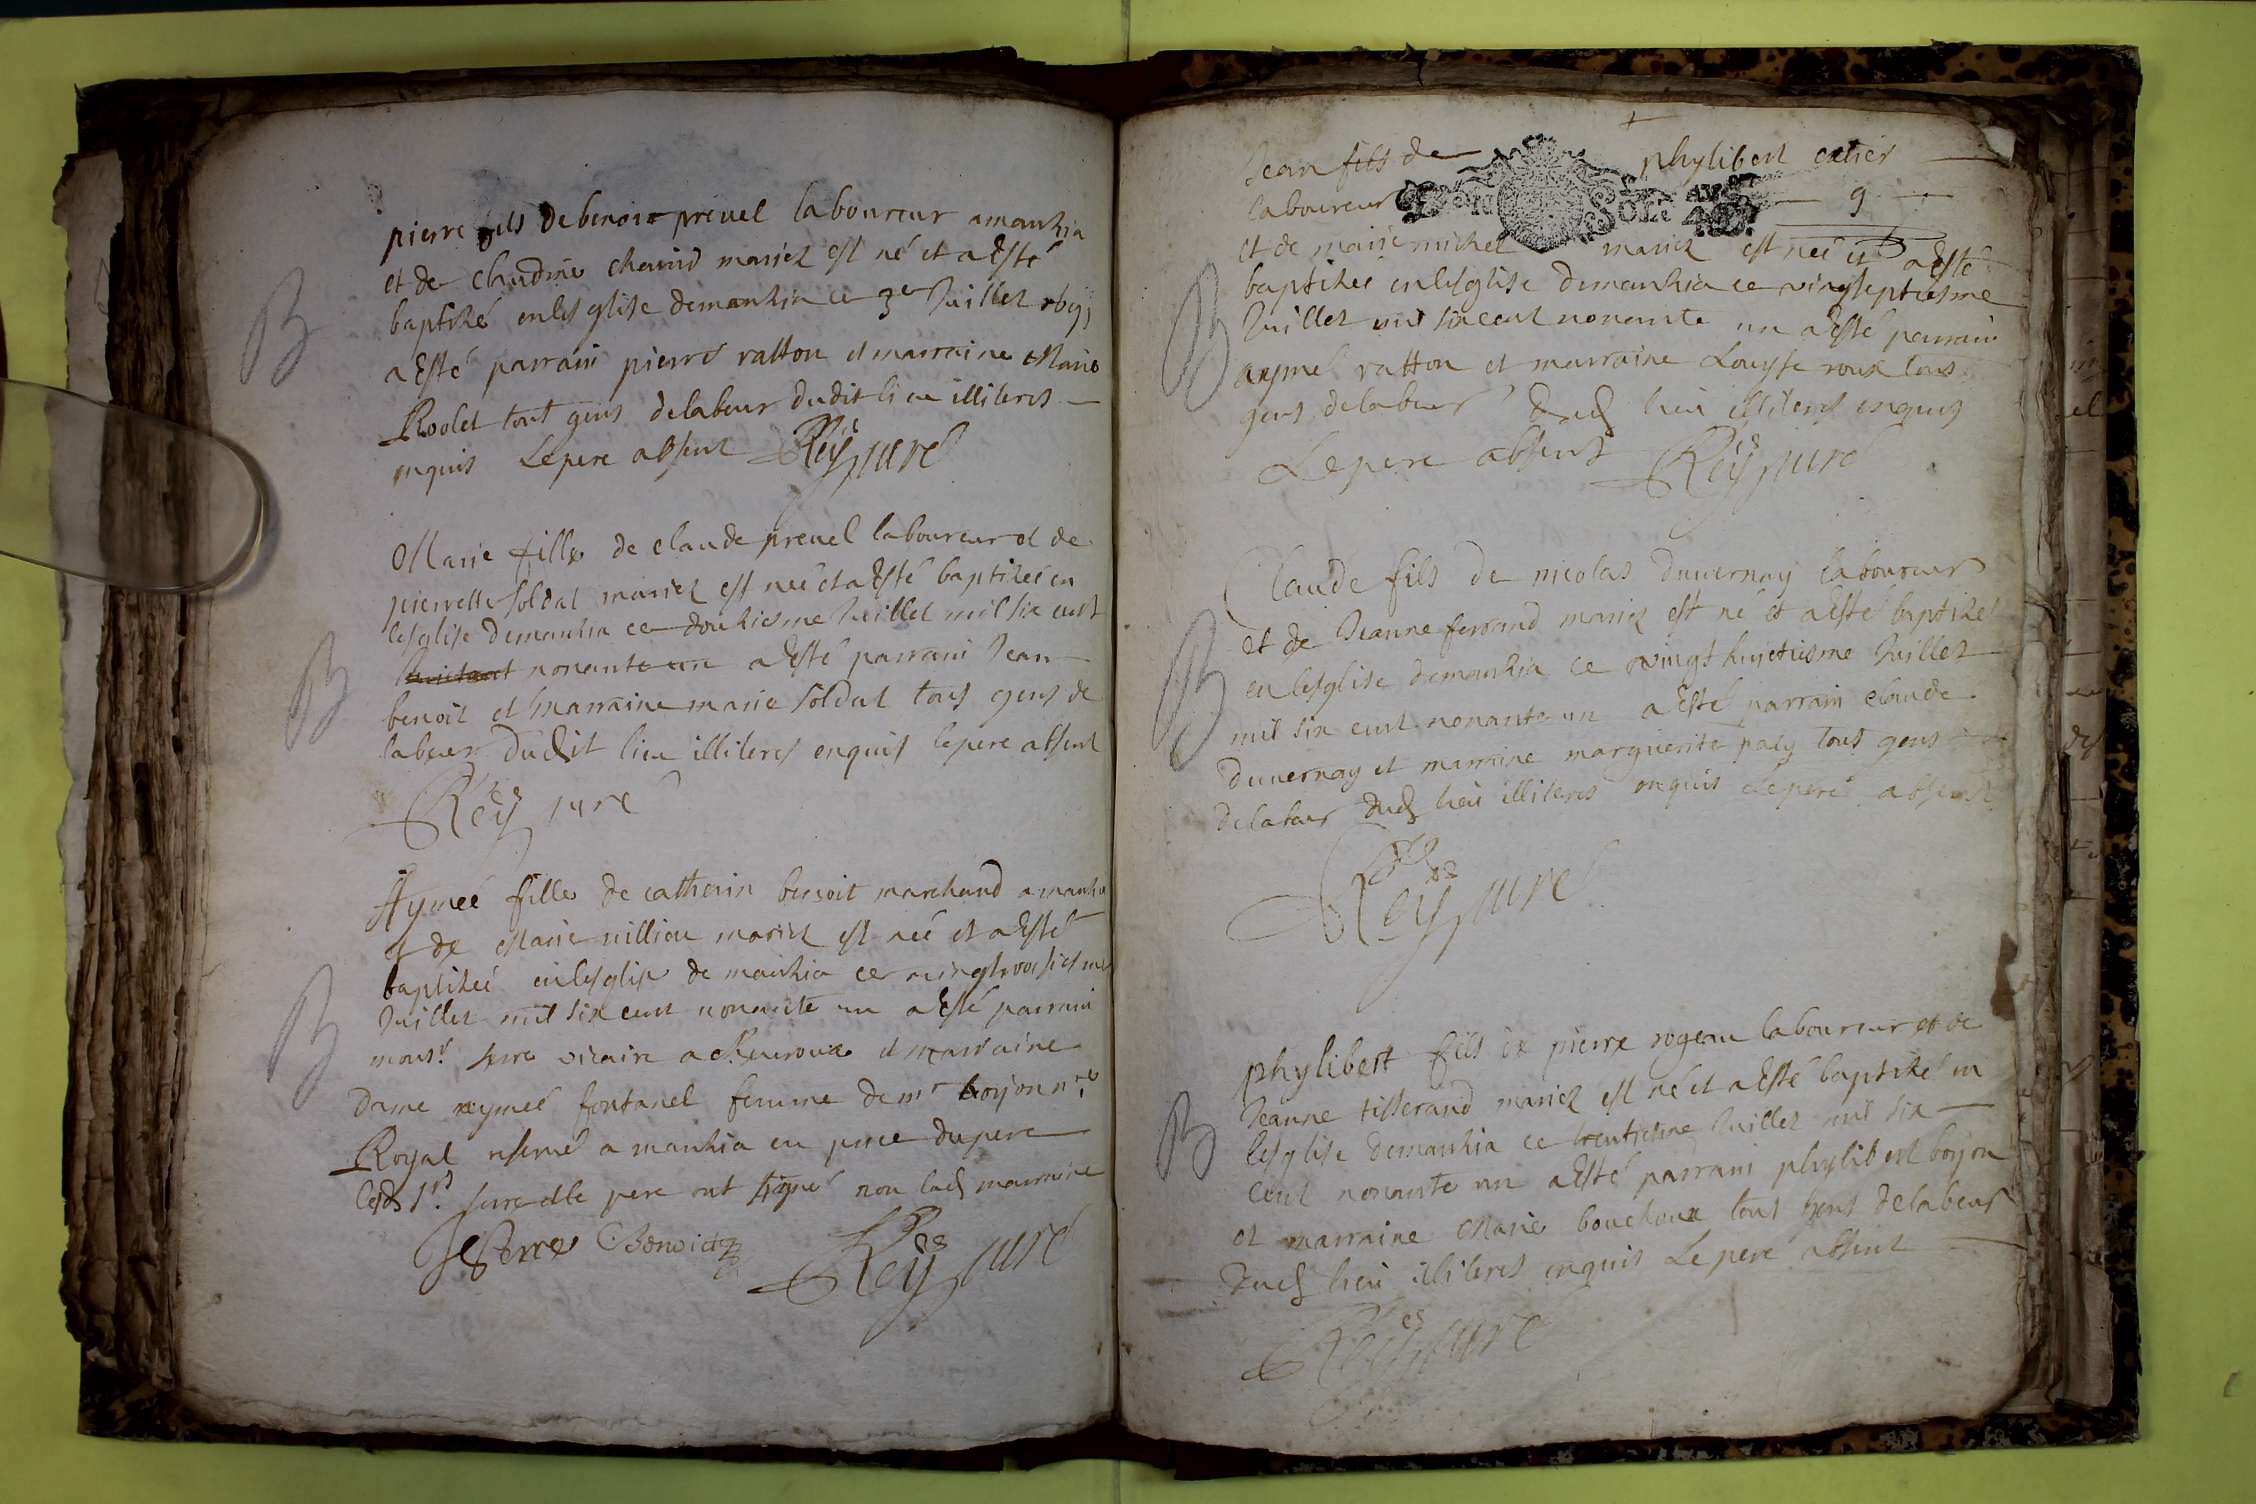 B
pierre fils de benoit preuel laboureur a mankia
et de claudine mariez est né et a Esté
baptizé en lesglise de mankia ce 3e Juillet
a Esté parrain pierre ratton et marraine Marie
Roolet tout gens de labeur dudit lieu illiteres
enquis Le pere absent Reÿ curé
B
Marie fille de claude preuel laboureur et de
pierrette soldat mariez est neé et a Esté baptizeé en
lesglise de mankia ce douziesme Juillet mil six cent
nonante un a Esté parrain Jean
benoit et marraine marie soldat tous gens de
labeur dudit lieu illiteres enquis le pere absent
Reÿ curé
B
Aymeé fille de catherin benoit marchand a mankia
et de Marie million mariez est neé et a Esté
baptizeé en lesglise de mankia ce vingt troisiesme
Juillet mil six cent nonante un a Esté parrain
monsr. serre vicaire a et marraine
Dame aymeé fontanel femme de mr boyon nre.
Royal a mankia en pnce du pere
lesds sr. serre et le pere ont signé non lad marraine
Serre Benoict Reÿ curé
B
Jean fils de phylibert
laboureur 9
et de marie michel mariez est né et a Esté
baptizeé en lesglise de mankia ce vingt septiesme
Juillet mil six cent nonante un a Esté parrain
aymé ratton et marraine Louyse roux tous
gens de labeur dud lieu illiteres enquis
Le pere absent Reÿ curé
B
Claude fils de nicolas duuernay laboureur
et de Jeanne ferrand mariez est né et a Esté baptizé
en lesglise de mankia ce vingt huictiesme Juillet
mil six cent nonante un a Esté parrain claude
duuernay et marraine marguerite tous gens
de labeur dud lieu illiteres enquis Le pere absent
Reÿ curé
B
phylibert fils de pierre rogeau laboureur et de
Jeanne tisserand mariez est né et a Esté baptizé en
lesglise de mankia ce trentiesme Juillet mil six
cent nonante un a Esté parrain phylibert boyon
et marraine Marie bouchoux tous gens de labeur
dud lieu illiteres enquis Le pere absent
Reÿ curé